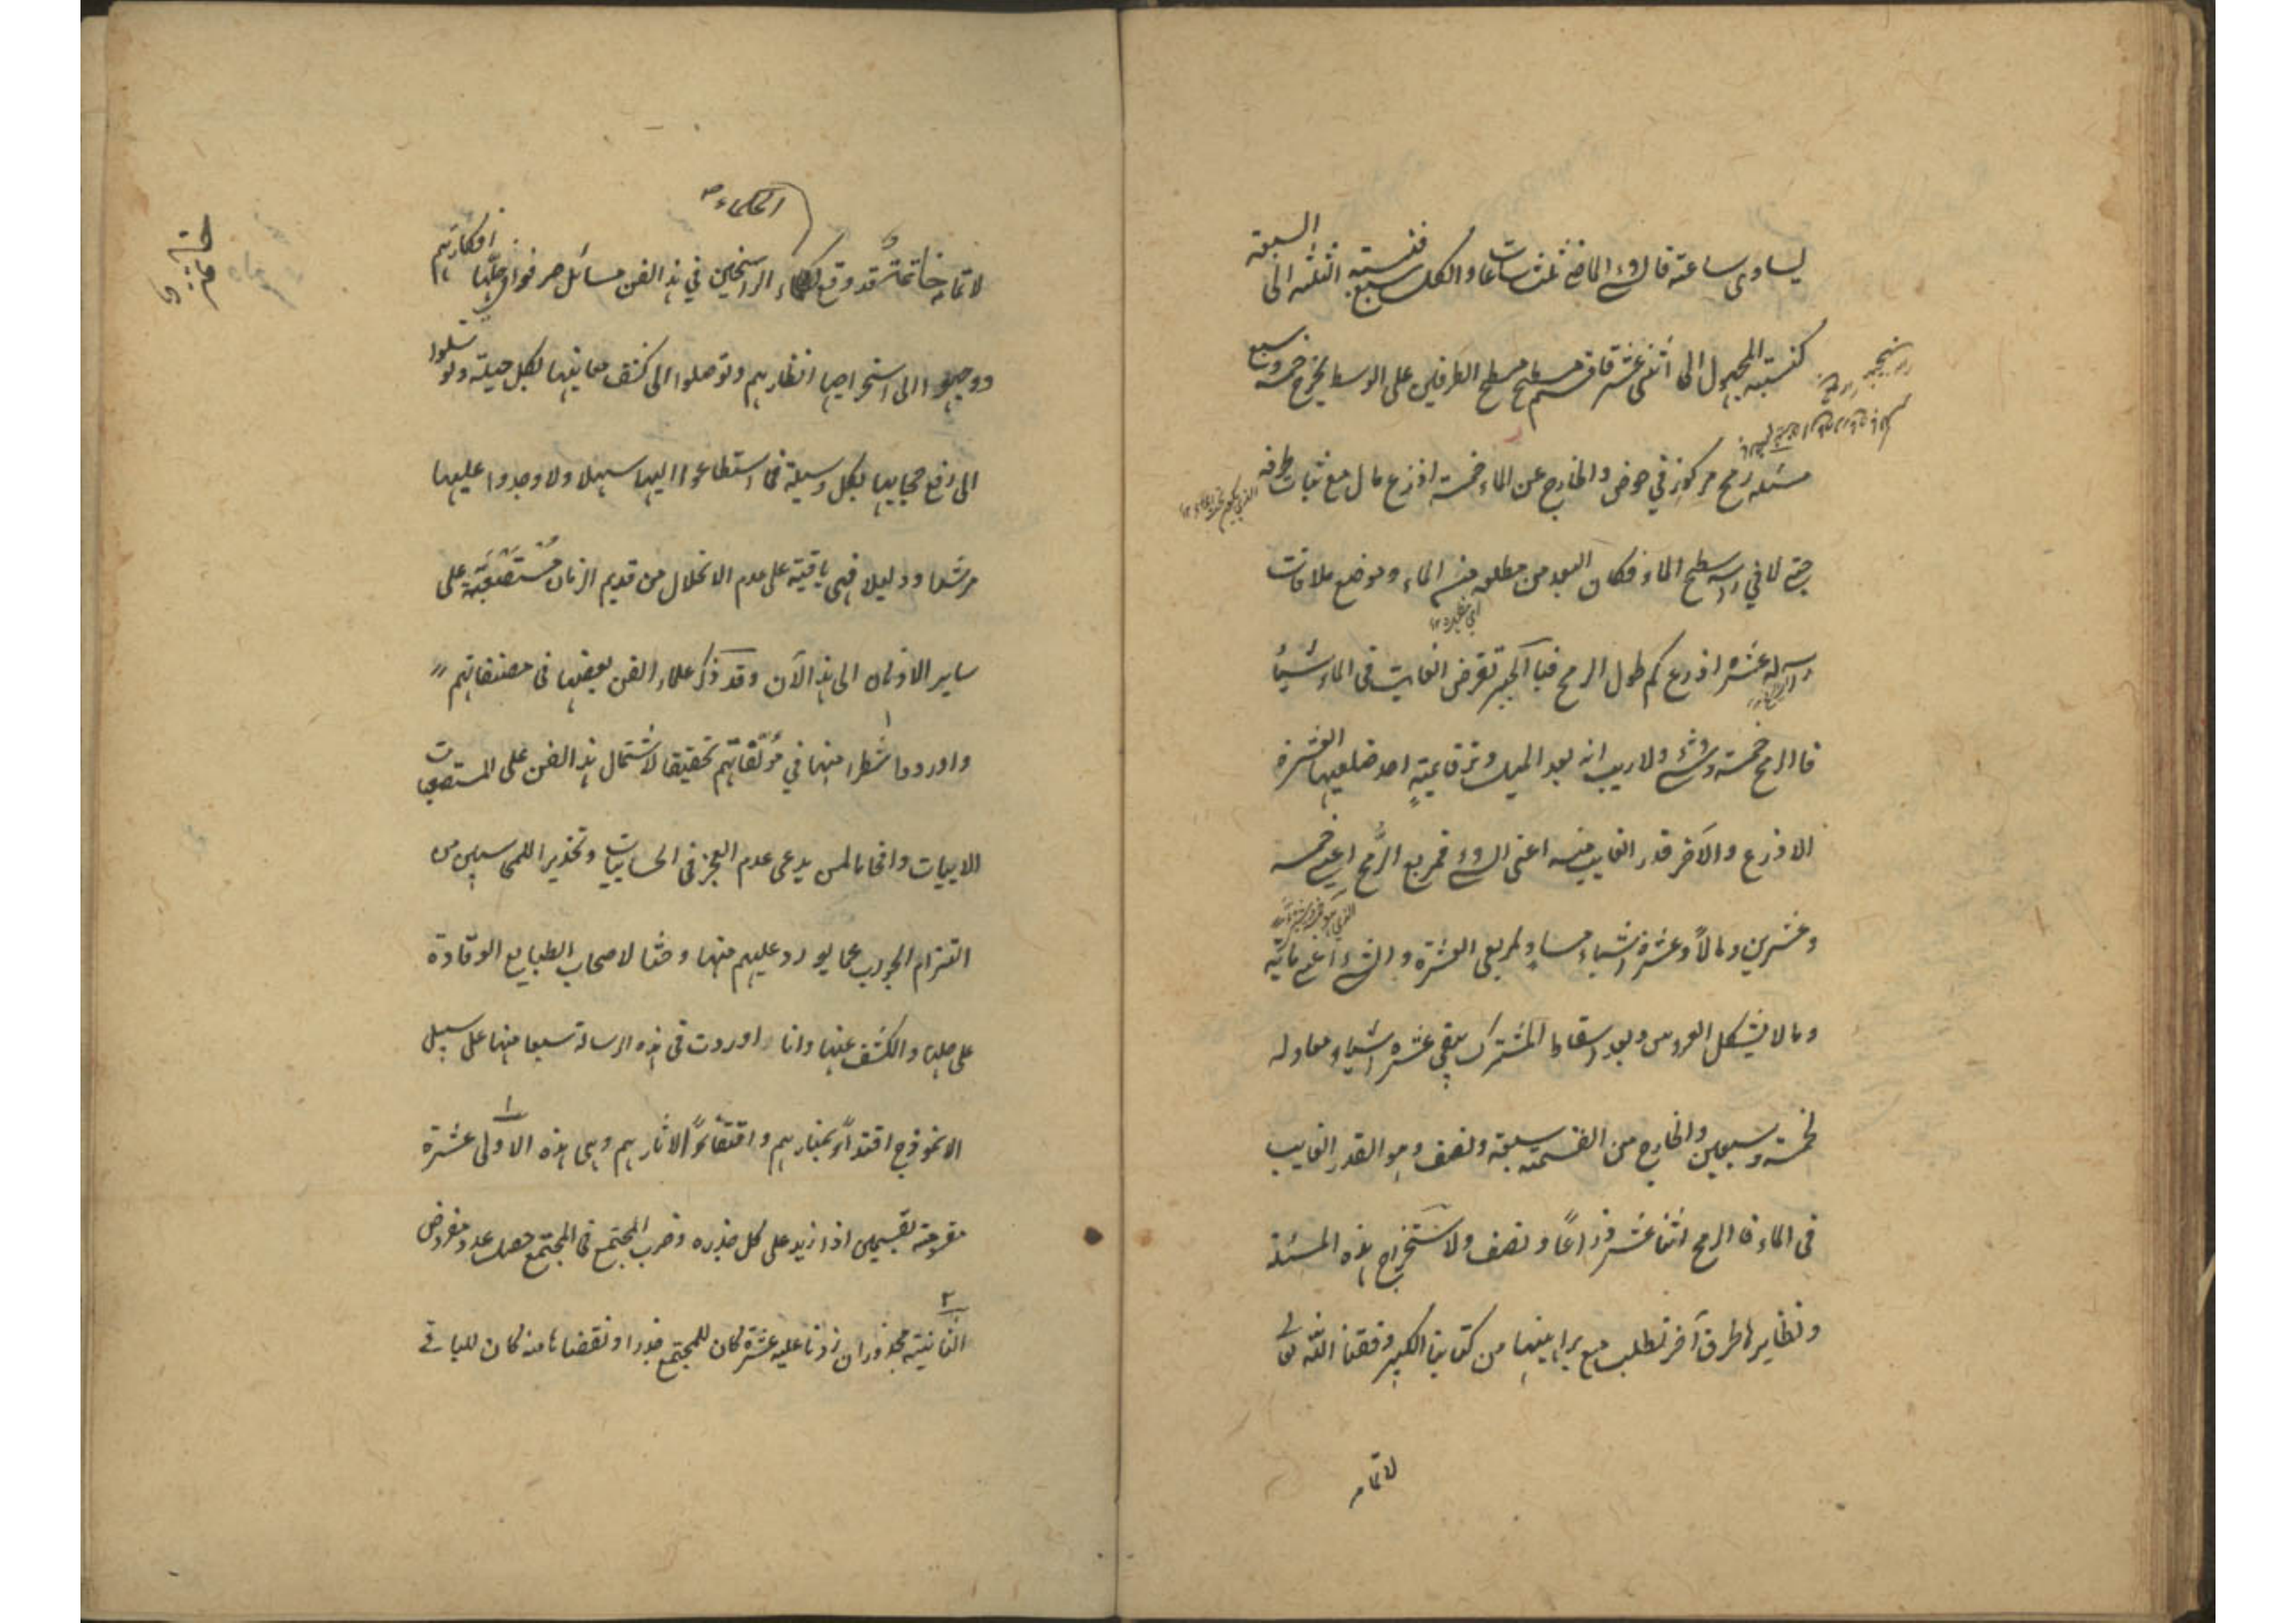 يساوى ساعة فالشئ الماضي ثلث ساعات والكل سبع فنسبة الثلثة الى السبعة
كنسبة المجهول الى اثنى عشر فاقسم مسطح الطرفين على الوسط يخرج خمسة وسبع
مسئله رمح مركوز في حوض والخارج عن الماء خمسة اذرع مال مع ثبات طرفه
حتى لاقي راسه سطح الماء فكان البعد من مطلعه من الماء وموضع ملاقات
راسه له عشرة اذرع كم طول الرمح فبالجبر تفرض الغايب فى الماء شيئا
فالرمح خمسة وشئ ولاريب انه بعد الميل وتر قايمة احد ضلعيها العشرة
الاذرع والآخر قدر الغايب منه اعنى الشئ فمربع الرُّمح اعنى خمسة
وعشرين ومالاً وعشرة اشياء مساوٍ لمربعى العشرة والشئ اعنى مائة
ومالا بشكل العروس وبعد اسقاط المشترك يبقى عشرة اشياء معادلة
لخمسة وسبعين والخارج من القسمة سبعة ونصف وهو القدر الغايب
فى الماء فالرمح اثنا عشر ذراعاً ونصف ولاستخراج هذه المسئلة
ونظايرها طرق آخر تطلب مع براهينها من كتابنا الكبير وفقنا الله تعالى
لاتمامه
خاتمة
الحكماء صح
لاتمامه خاتمة قد وقع للحكماء الراسخين في هذا الفن مسائل صرفوا في حلّها افكارهم
ووجهوا الى استخراجها انظارهم وتوصلوا الى كشف نقابها بكل حيلة وتوسلوا
الى رفع حجابها بكل وسيلة فما استطاعوا اليها سبيلا ولا وجدوا عليها
مرشدا ودليلا فهى باقية على عدم الانحلال من قديم الزمان مُسْتَصْعَبَة على
ساير الاذهان الى هذا الآن وقد ذكر علماء الفن بعضها فى مصنفاتهم
واوردوا شطرا منها في مؤلّفاتهم تحقيقا لاشتمال هذا الفن على المستصعبات
الابيات وافحاما لمن يدعى عدم العجز فى الحسابيات وتحذيرا للمحاسبين من
التزام الجواب عما يورد عليهم منها وحثا لاصحاب الطبايع الوقادة
على حلها والكشف عنها وانا اوردت فى هذه الرسالة سبعا منها على سبيل
الانموذج اقتداءً بمنارهم واقتفاءً لاثارهم وهى هذه الاولى عشرة
مقسومة بقسمين اذا زيد على كل جذره وضرب المجتمع فى المجتمع حصل عدد مفروض
الثانية مجذور ان زدنا عليه عشرة كان للمجتمع جذرا ونقصناها منه كان للباقى